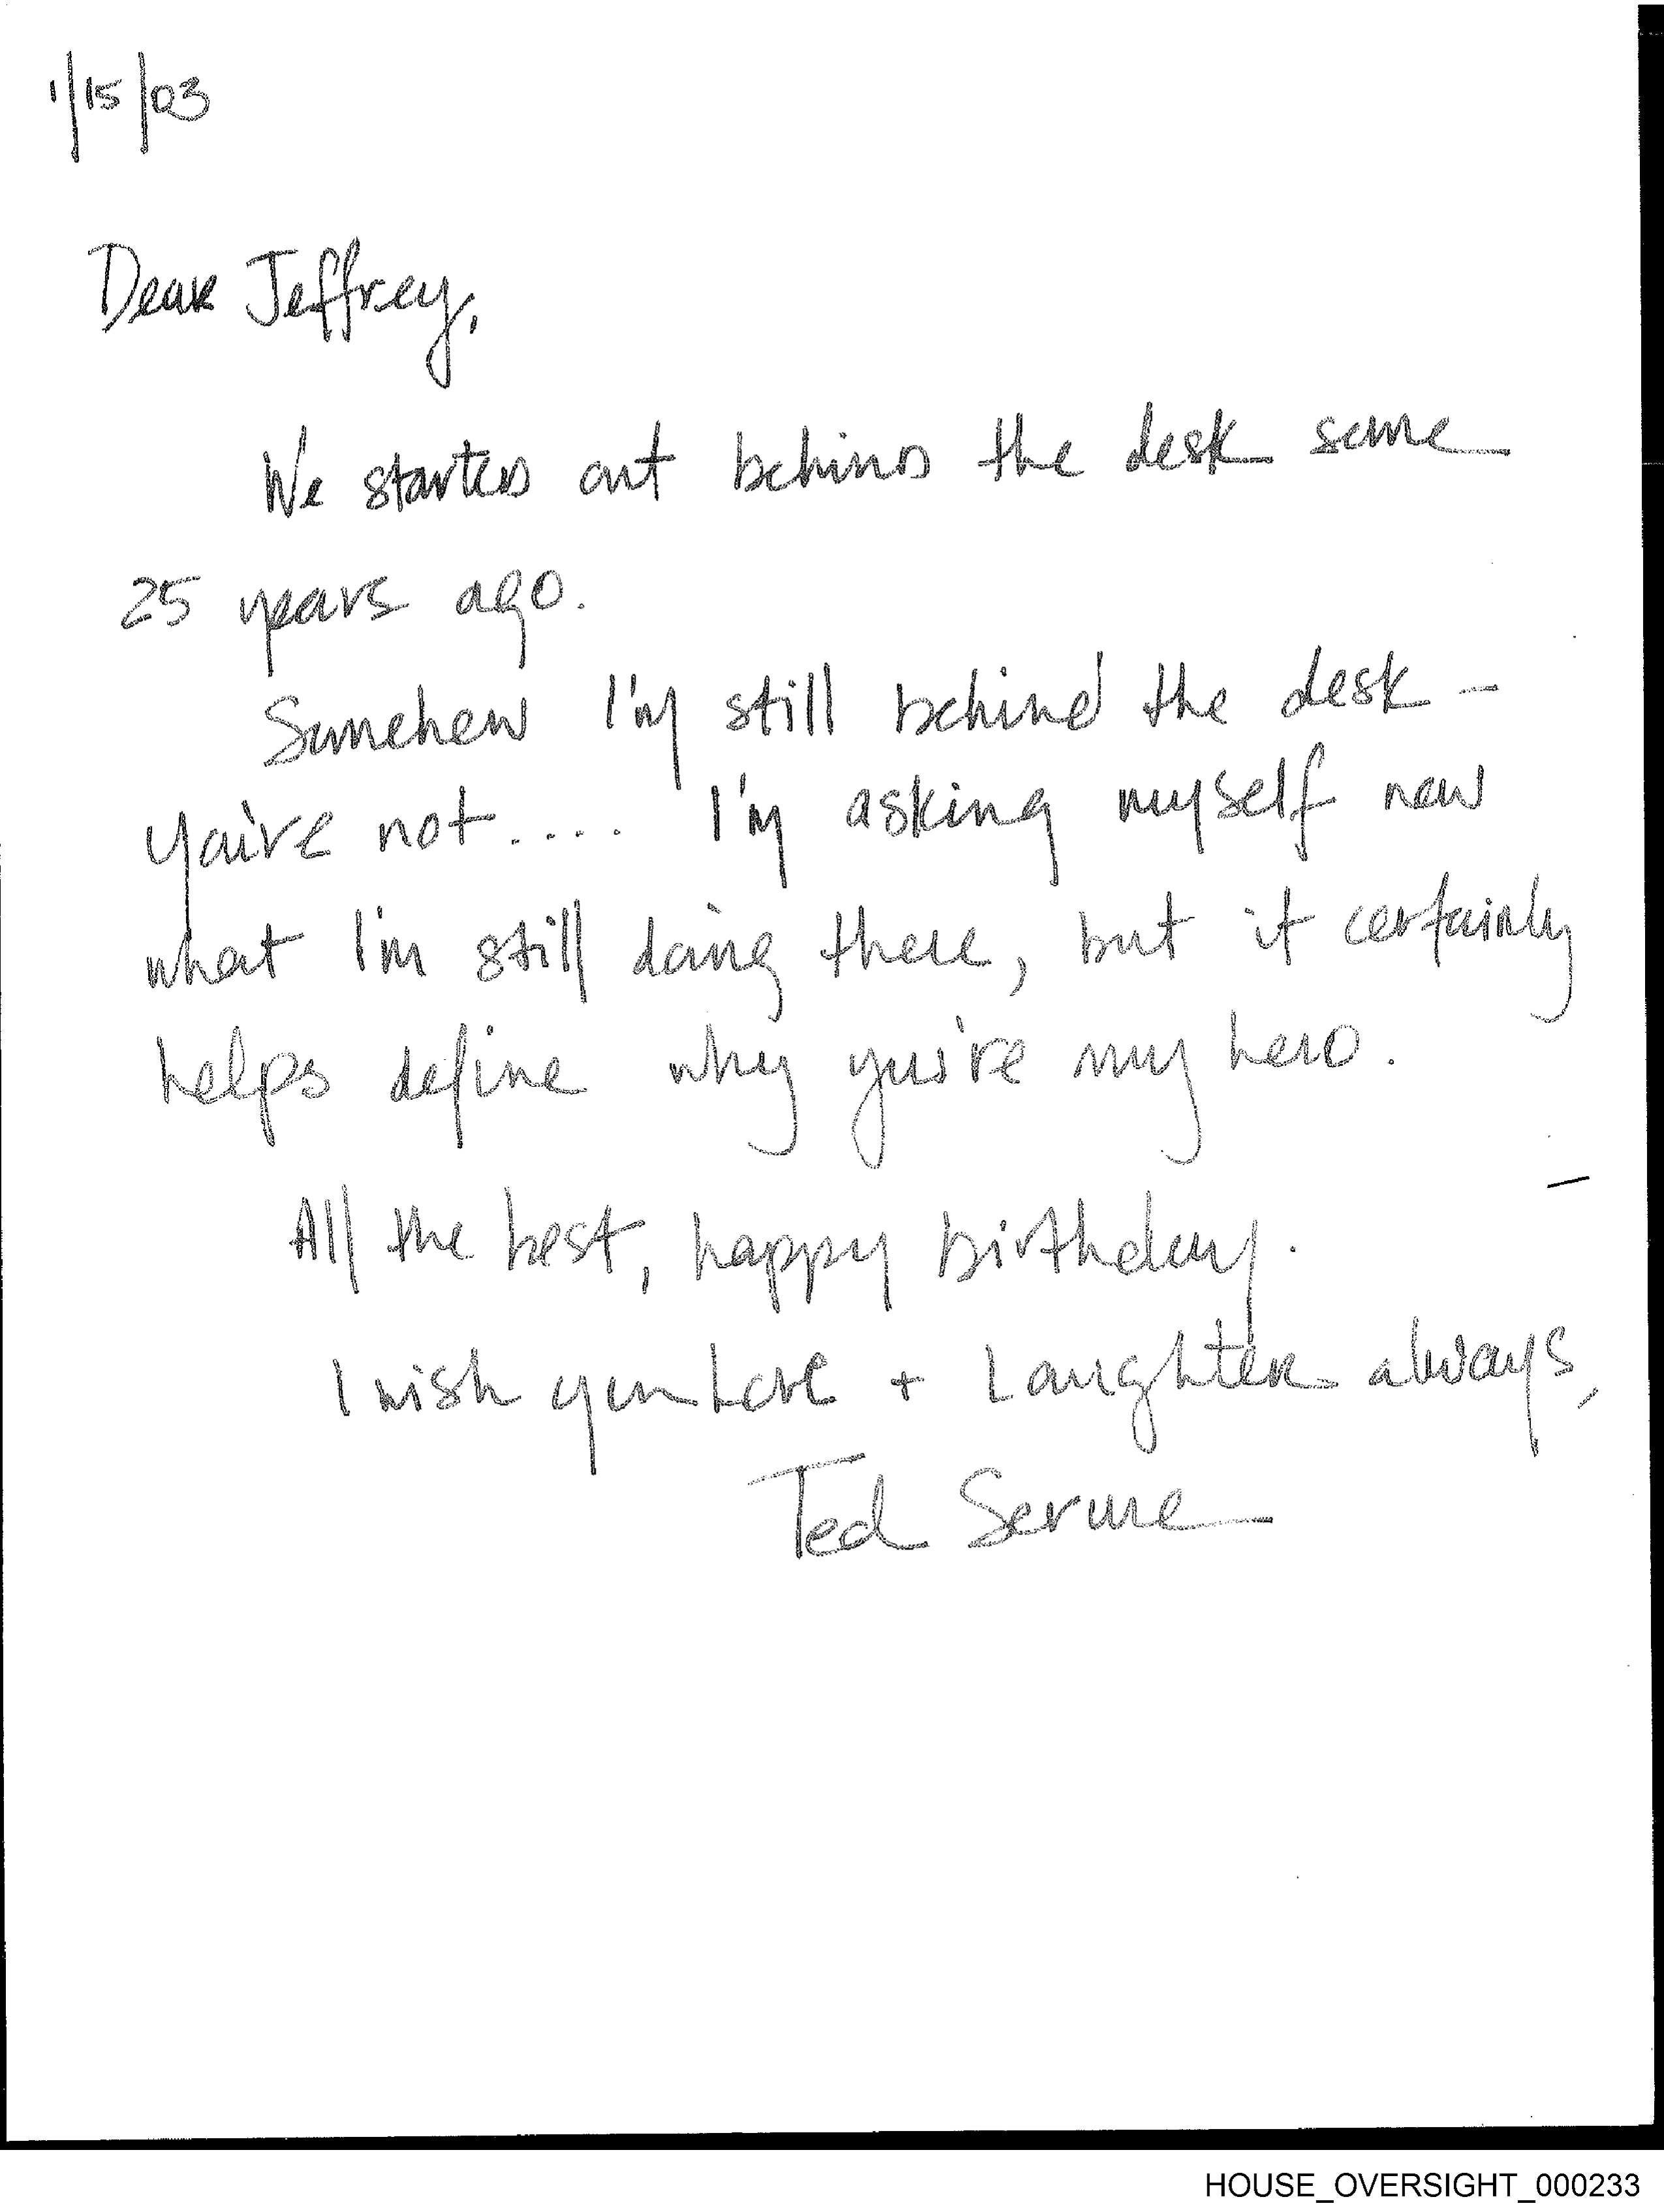 1/15/03
Dear Jeffrey,
We started out behind the desk some
25 years ago.
Somehow I'm still behind the desk –
you're not.... I'm asking myself now
what I'm still doing there, but it certainly
helps define why you're my hero.
All the best, happy birthday.
I wish you Love + Laughter always,
Ted Serure
HOUSE_OVERSIGHT_000233